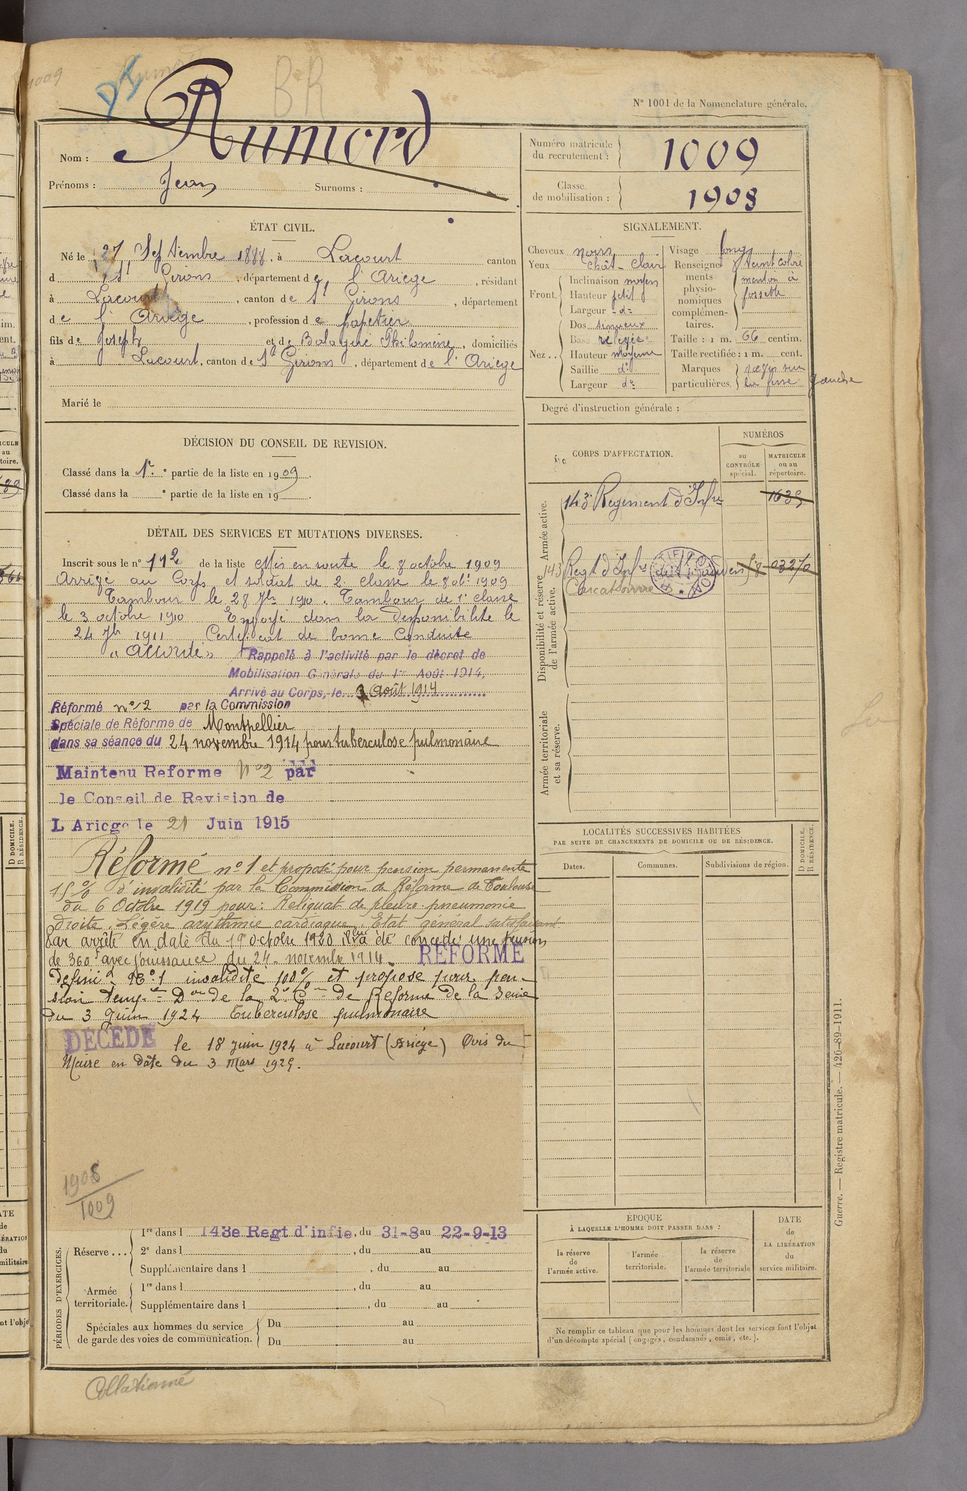 1009
BR
N° 1001 de la Nomenclature générale.
Nom : Rumord
Prénoms : Jean Surnoms :
Numéro matricule du recrutement : 1009
Classe de mobilisation : 1908
ÉTAT CIVIL.
Né le 27 Septembre 1888, à Lacourt canton
d St Girons, département de l'Ariège, résidant
à Lacourt, canton de St Girons, département
de l'Ariège, profession de papetier
fils de Joseph et de Balagué Philomène, domiciliés
à Lacourt, canton de St Girons, département de l'Ariège
Marié le
SIGNALEMENT.
Cheveux noirs
Yeux chât-clair
Front. Inclinaison moyen
Hauteur petit
Largeur do
Nez .. Dos sinueux
Base
Hauteur moyenne
Saillie do
Largeur do
Visage long
Renseignements physionomiques complémentaires. teint coloré
menton à
fossette
Taille : 1 m. 66 centim.
Taille rectifiée : 1 m. cent.
Marques particulières. sur
gauche
Degré d'instruction générale :
DÉCISION DU CONSEIL DE REVISION.
Classé dans la 1re partie de la liste en 1909.
Classé dans la e partie de la liste en 19
CORPS D'AFFECTATION.
NUMÉROS
DU CONTRÔLE spécial.
MATRICULE ou au répertoire.
Armée active.
143e Régiment d'Infie
Disponibilité et réserve de l'armée active.
143 Regt d'Infie
Carcassonne
Armée territoriale et sa réserve.
DÉTAIL DES SERVICES ET MUTATIONS DIVERSES.
Inscrit sous le n° 112 de la liste Mis en route le 8 octobre 1909
Arrivé au Corps et soldat de 2e classe le 8 obre 1909
Tambour le 28 7bre 1910. Tambour de 1e classe
le 3 octobre 1910 Envoyé dans la disponibilité le
24 7bre 1911 Certificat de bonne Conduite
"Accordé" Rappelé à l'activité par le décret de
Mobilisation Générale du 1er Août 1914,
Arrivé au Corps, le 3 Août 1914
Réformé n° 2 par la Commission
Spéciale de Réforme de Montpellier
dans sa séance du 24 novembre 1914 pour tuberculose pulmonaire
Maintenu Reforme N° 2 par
le Conseil de Revision de
L Ariege le 21 Juin 1915
Réformé n° 1 et proposé pour pension permanente
15% d'invalidité par la Commission de Réforme de Toulouse
du 6 Octobre 1919 pour : Reliquat de pleuro-pneumonie
droite. Légère arythmie cardiaque. Etat général satisfaisant
Par arrêté en date du 19 octobre 1920 il a été concédé une pension
de 360 f avec jouissance du 24 novembre 1914. RÉFORMÉ
Définif N° 1 invalidité 100% et proposé pour pen-
sion temp. Don de la 2e Con de Réforme de la Seine
du 3 Juin 1924 Tuberculose pulmonaire
DÉCÉDÉ le 18 juin 1924 à Lacourt (Ariège) Avis du
Maire en date du 3 Mars 1925.
1908
1009
LOCALITÉS SUCCESSIVES HABITÉES
PAR SUITE DE CHANGEMENTS DE DOMICILE OU DE RÉSIDENCE.
Dates. Communes. Subdivisions de région. D DOMICILE. R RÉSIDENCE.
ÉPOQUE
À LAQUELLE L'HOMME DOIT PASSER DANS :
la réserve de l'armée active.
l'armée territoriale.
la réserve de l'armée territoriale
DATE de LA LIBÉRATION du service militaire.
Ne remplir ce tableau que pour les hommes dont les services font l'objet
d'un décompte spécial (engagés, condamnés, omis, etc.).
PÉRIODES D'EXERCICES.
Réserve... 1re dans l 143e Regt d'infie, du 31-8 au 22-9-13
2e dans l , du au
Supplémentaire dans l , du au
Armée territoriale. 1re dans l , du au
Supplémentaire dans l , du au
Spéciales aux hommes du service de garde des voies de communication. Du au
Du au
Guerre. — Registre matricule. — 426-89-1911.
Collationné